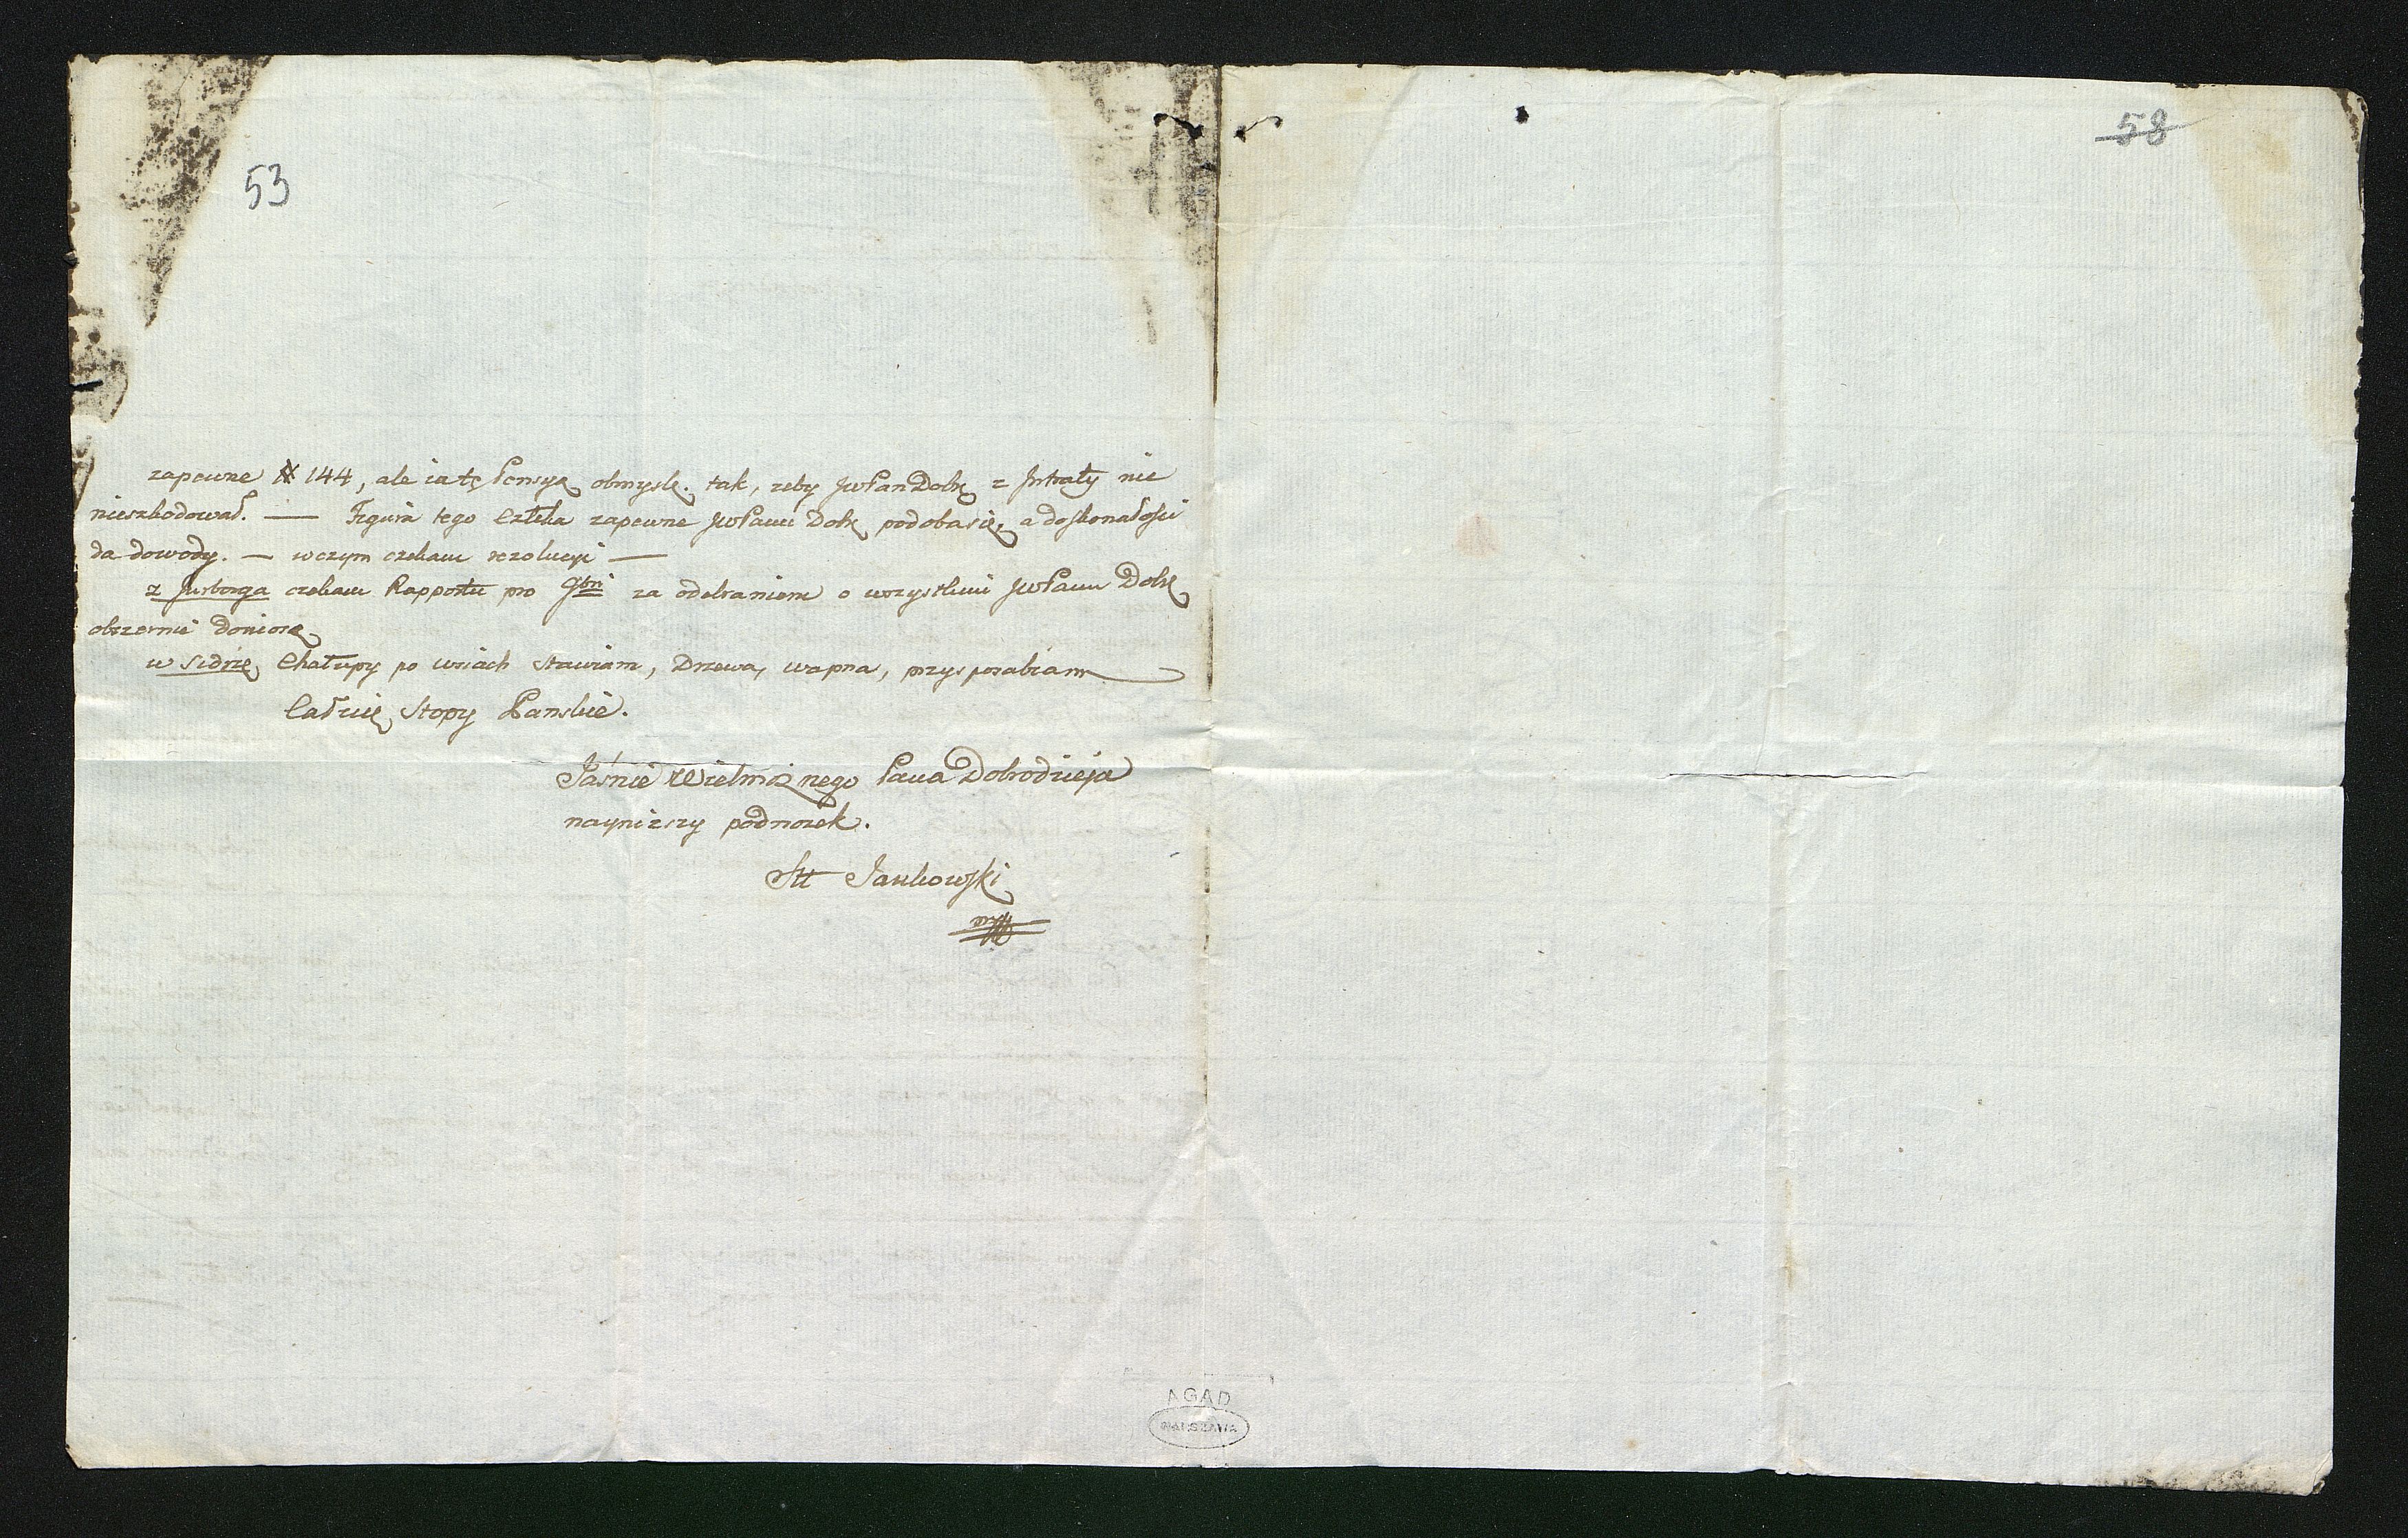 53
58
zapewne # 144, ale ia tę Pensyą obmyslę. tak, zeby JwPan Dobr z Intraty nie
nieszkodował. — Figura tego Człeka zapewne JwPanu Dobr podoba się, a doskonałości
da dowody. — w czym czekam rezolucyi —
z Jurborga czekam Rapportu pro 9bri za odebraniem o wszystkim JwPanu Dobr
obszernie doniosę
w Sidrze, Chałupy po wsiach stawiam, Drzewa, wapna, przysposabiam
Całuię Stopy Panskie.
Jaśnie Wielmożnego Pana Dobrodzieja
nayniższy podnożek.
Jankowski
AGAD
WARSZAWA